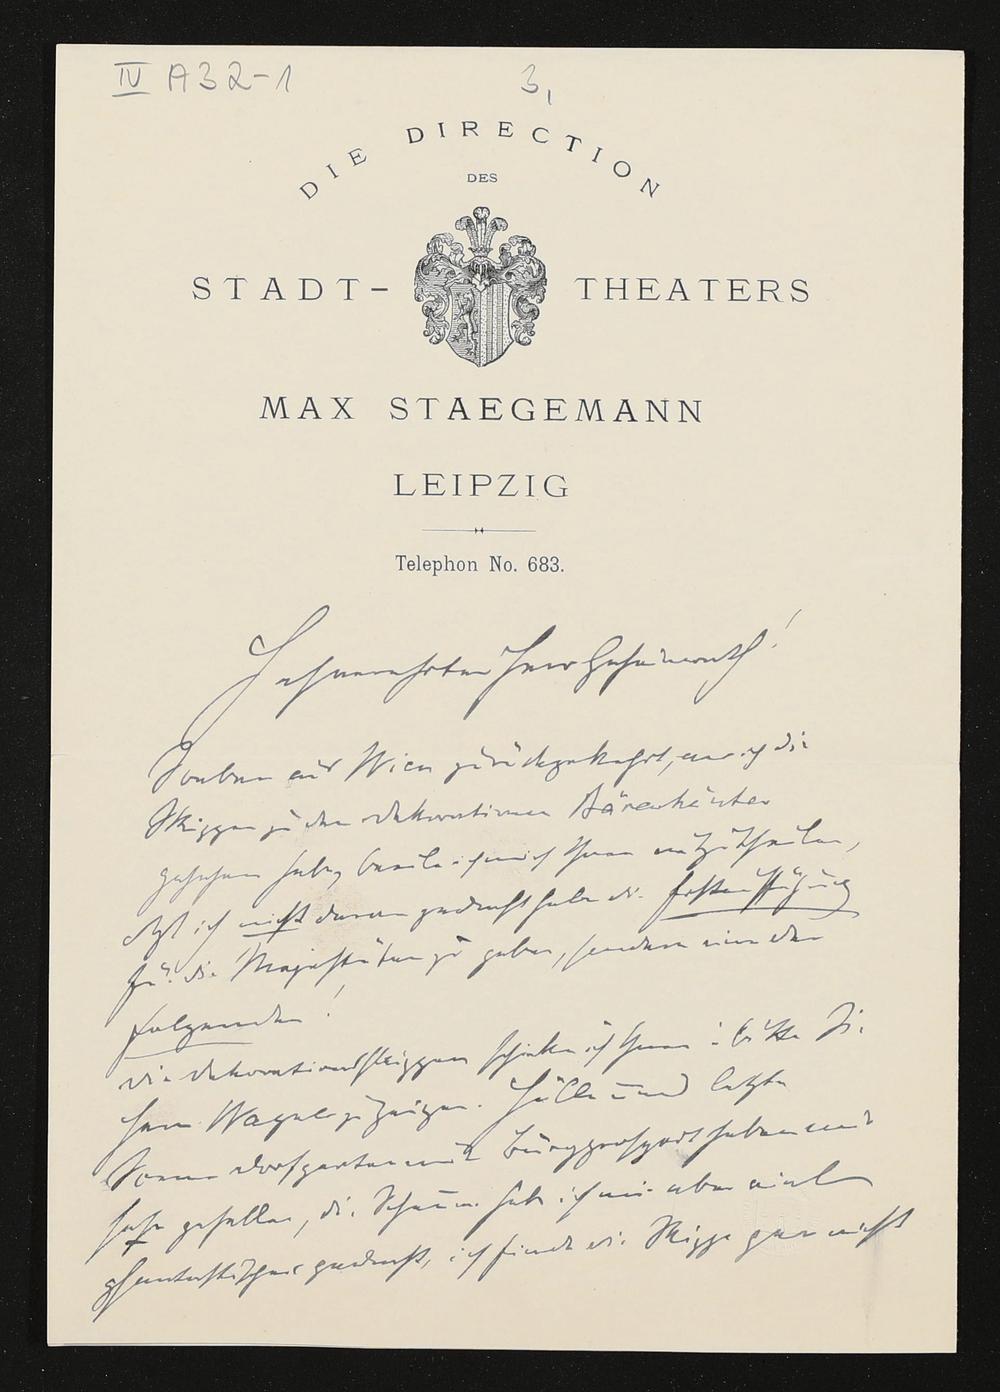 IV A32-1
3,
DIE DIRECTION
DES
STADT- THEATERS
MAX STAEGEMANN
LEIPZIG
Telephon No. 683.
Hochverehrter Herr Geheimrath!
Soeben aus Wien zurückgekehrt, wo ich die
Skizzen zu den Dekorationen Bärenhäuter
gesehen habe, beeile ich mich Ihnen mitzutheilen,
daß ich nicht daran gedacht habe die Erstaufführung
für die Majestäten zu geben, sondern eine der
folgenden!
Die Dekorationsskizzen schicke ich Ihnen : bitte Sie
Herrn zu zeigen. Hölle und letzte
Scene Dorfgarten mit haben mir
sehr gefallen, die habe ich mir aber viel
phantastischer gedacht, ich finde die Skizze gar nicht